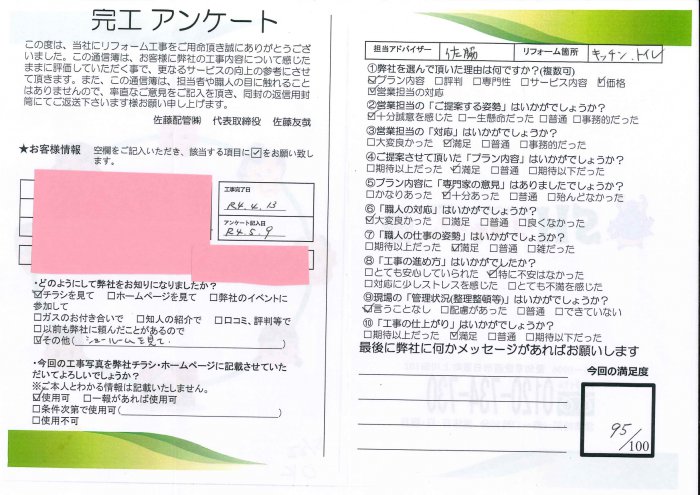 完工 アンケート
この度は、当社にリフォーム工事をご用命頂き誠にありがとうござ
いました。この通信簿は、お客様に弊社の工事内容について感じた
ままに評価していただく事で、更なるサービスの向上の参考にさせ
て頂きます。また、この通信簿は、担当者や職人の目に触れること
はありませんので、率直なご意見をご記入を頂き、同封の返信用封
筒にてご返送下さいます様お願い申し上げます。
佐藤配管㈱ 代表取締役 佐藤友哉
★お客様情報 空欄をご記入いただき、該当する項目に☑をお願い致し
ます。
工事完了日
R4.4.13
アンケート記入日
R4.5.9
・どのようにして弊社をお知りになりましたか?
☑チラシを見て □ホームページを見て □弊社のイベントに
参加して
□ガスのお付き合いで □知人の紹介で □口コミ、評判等で
□以前も弊社に頼んだことがあるので
☑その他( ショールームを見て )
・今回の工事写真を弊社チラシ・ホームページに記載させていた
だいてよろしいでしょうか?
※ご本人とわかる情報は記載いたしません。
☑使用可 □一報があれば使用可
□条件次第で使用可( )
□使用不可
担当アドバイザー 佐脇 リフォーム箇所 キッチン、トイレ
①弊社を選んで頂いた理由は何ですか?(複数可)
☑プラン内容 □評判 □専門性 □サービス内容 ☑価格
☑営業担当の対応
②営業担当の「ご提案する姿勢」はいかがでしょうか?
☑十分誠意を感じた □一生懸命だった □普通 □事務的だった
③営業担当の「対応」はいかがでしょうか?
□大変良かった ☑満足 □普通 □事務的だった
④ご提案させて頂いた「プラン内容」はいかがでしょうか?
□期待以上だった ☑満足 □普通 □期待以下だった
⑤プラン内容に「専門家の意見」はありましたでしょうか?
□かなりあった ☑十分あった □普通 □殆んどなかった
⑥「職人の対応」はいかがでしょうか?
☑大変良かった □満足 □普通 □良くなかった
⑦「職人の仕事の姿勢」はいかがでしょうか?
□期待以上だった ☑満足 □普通 □雑だった
⑧「工事の進め方」はいかがでしたか?
□とても安心していられた ☑特に不安はなかった
□対応に少しストレスを感じた □とても不満を感じた
⑨現場の「管理状況(整理整頓等)」はいかがでしょうか?
☑言うことなし □配慮があった □普通 □できていない
⑩「工事の仕上がり」はいかがでしょうか?
□期待以上だった ☑満足 □普通 □期待以下だった
最後に弊社に何かメッセージがあればお願いします
今回の満足度
95
/100